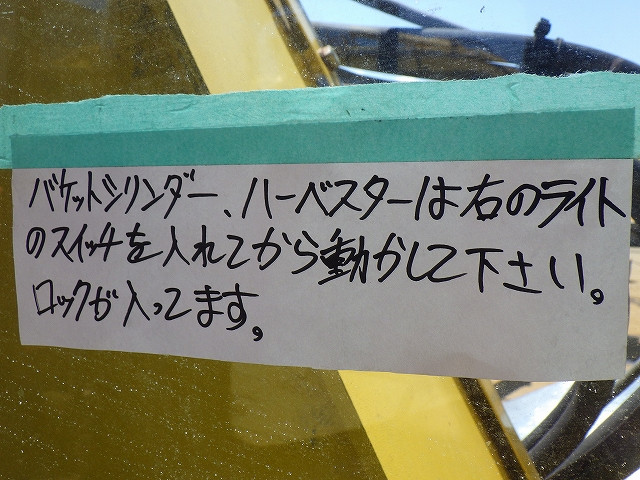 バケットシリンダー、ハーベスターは右のライト
のスイッチを入れてから動かして下さい。
ロックが入ってます。